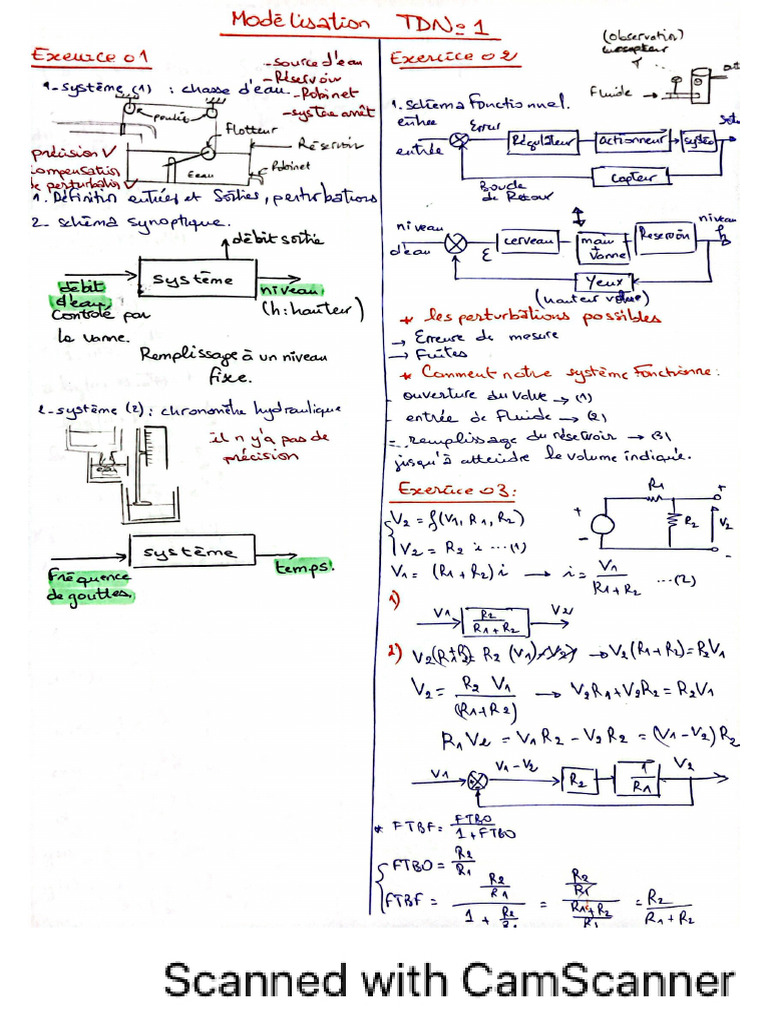 Modélisation TDN°1
Exercice 01
- source d'eau
- Réservoir
1- système (1) : chasse d'eau. - Robinet
- système arrêt
poulie
Flotteur
Réservoir
Robinet
Eeau
précision V
compensation
de perturbation V
1. Définition entrées et Sorties, perturbations
2- schéma synoptique.
débit sortie
système
débit
d'eau,
niveau,
Contrôlé par
(h: hauteur)
la vanne.
Remplissage à un niveau
fixe.
2-système (2) : chronomètre hydraulique
eau
il n y'a pas de
précision
système
Fréquence
de gouttes,
temps!
Exercice 02
(observation)
Fluide
1. schéma Fonctionnel.
entrée
Erreur
entrée
Régulateur
actionneur
système
Capteur
Boucle
de Retour
niveau
d'eau
ε
cerveau
main
vanne
Reservoir
niveau
h
Yeux
(hauteur value)
* les perturbations possibles
→ Erreure de mesure
→ Fuites
* Comment notre système Fonctionne:
- ouverture du Valve → (1)
- entrée de Fluide → (2)
= remplissage du réservoir → (3)
jusqu'à atteindre le volume indiqué.
Exercice 03:
R1
+
+
R2
V2
-
-
V2 = f(V1, R1, R2)
V2 = R2 i ...(1)
V1 = (R1 + R2) i → i = V1 / (R1 + R2) ...(2)
1)
V1
R2 / (R1 + R2)
V2
2) V2(R1+R2) = R2 (V1) → V2(R1+R2) = R2V1
V2 = R2 V1 / (R1+R2) → V2R1 + V2R2 = R2V1
R1 Ve = V1 R2 - V2 R2 = (V1 - V2) R2
V1
V1 - V2
R2
1 / R1
V2
* FTBF = FTBO / (1 + FTBO)
FTBO = R2 / R1
FTBF = (R2 / R1) / (1 + R2 / R1) = (R2 / R1) / ((R1 + R2) / R1) = R2 / (R1 + R2)
Scanned with CamScanner